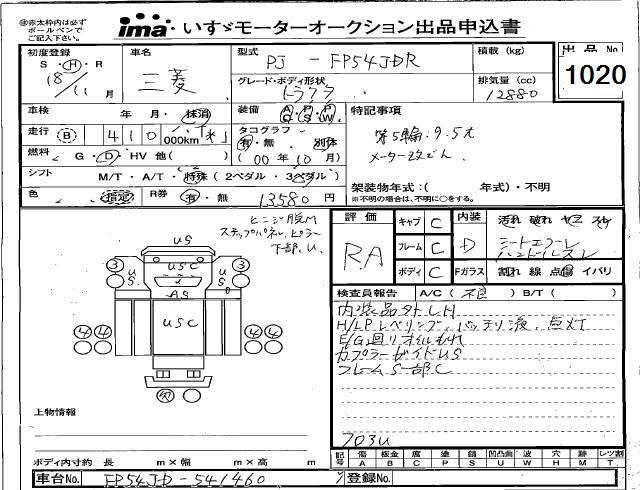 ※赤太枠内は必ずボールペンでご記入下さい。
ima いすゞモーターオークション出品申込書
出品No
1020
初度登録 S・H・R 18/11月
車名 三菱
型式 PJ - FP54JDR
積載(kg)
グレード・ボディ形状 トラクタ
排気量(cc) 12880
車検 年 月・抹消
装備 A・P・P C・S・W
走行 B 410,000km
タコグラフ 有・無 別体
特記事項
第5輪:9.5t
メーター改ざん
燃料 G・D・HV 他( )
(00年10月)
シフト M/T・A/T・特殊(2ペダル・3ペダル)
架装物年式:( 年式)・不明
※不明の場合は、不明に○をする。
色 指定
R券 有・無 13580円
ヒンジ脱M
ステップパネル、ピラー
下部、U
US
3 USC 3
US US
AS
USC
4 4 4 4
欠
評価 R.A
キャブ C
フレーム C
ボディ C
内装 D
Fガラス
汚れ 破れ ヤニ スレ
シートエフーレ
ハンドルスレ
割れ 線 点 傷 イバリ
検査員報告 A/C(不良)B/T( )
内装品外しH
H/LPレベリング、バッテリ液、点灯
E/G回りオイルもれ
カプラーガイドUS
フレームS一部C
703U
上物情報
ボディ内寸約 長 m×幅 m×高 m
記号 傷A 板金B 腐C 塗P 錆S 凹凸曲U 波W 穴H 跡M レンズ割T
車台No. FP54JD-541460
登録No.